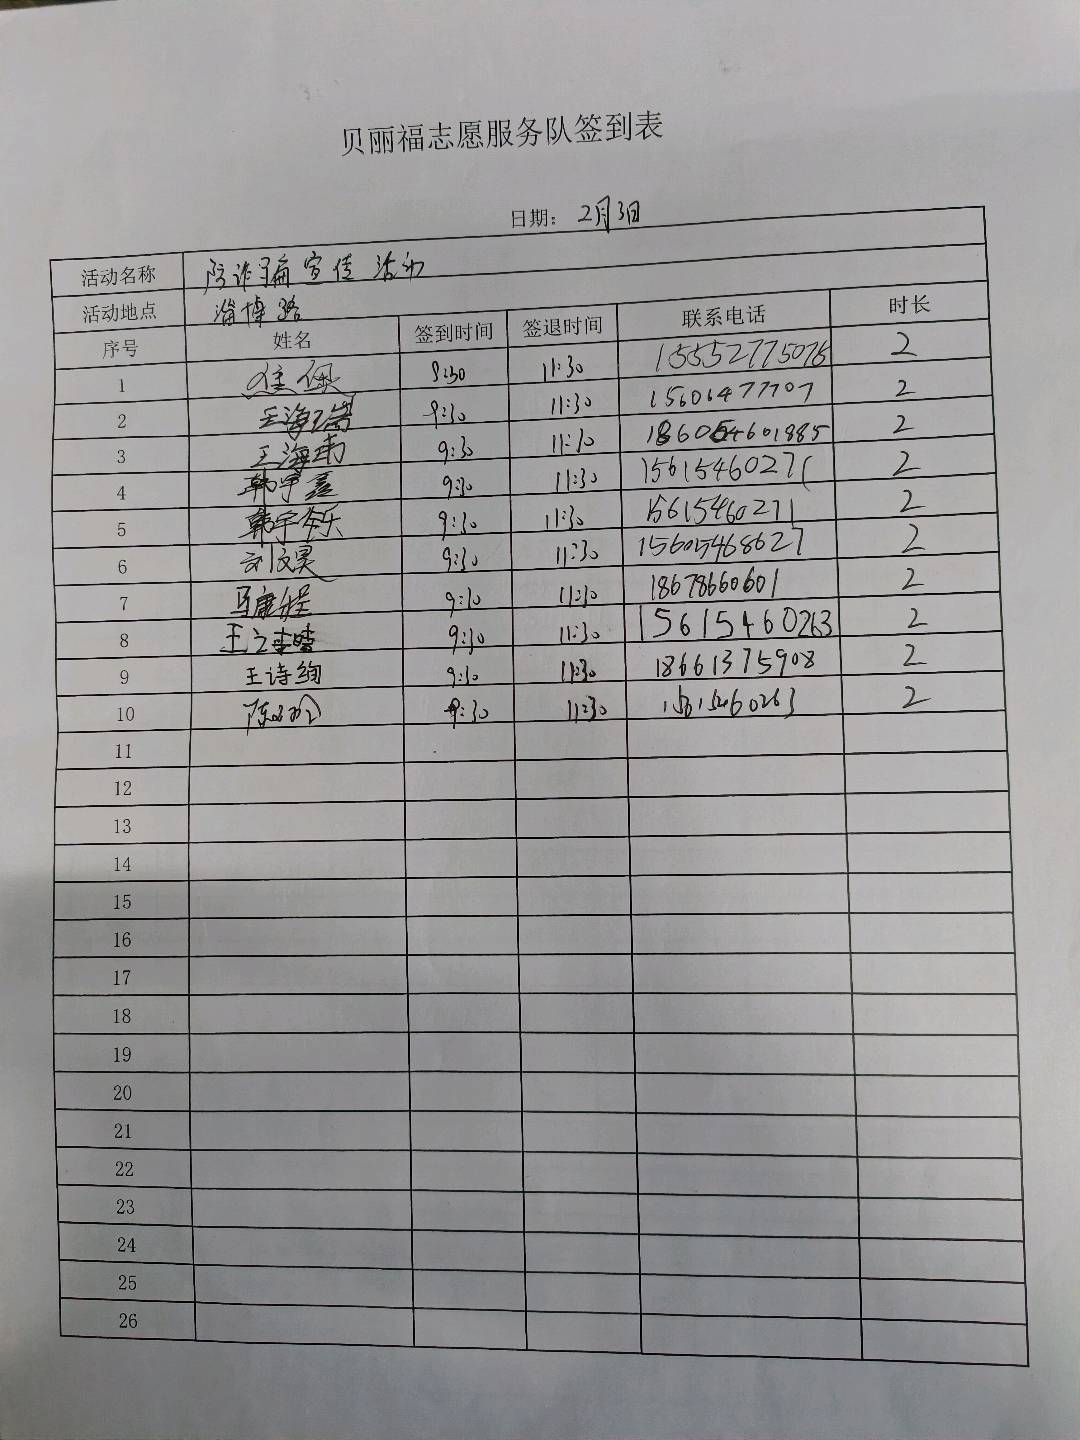 贝丽福志愿服务队签到表
日期： 2月3日
活动名称 防诈骗宣传活动
活动地点 淄博路
序号 姓名 签到时间 签退时间 联系电话 时长
1 佳佩 9:30 11:30 15552775078 2
2 王海瑞 9:30 11:30 15606477707 2
3 王海南 9:30 11:30 186054601885 2
4 韩宇鑫 9:30 11:30 15615460271 2
5 韩宇乐 9:30 11:30 15615460271 2
6 刘汶昊 9:30 11:30 15605468627 2
7 马康程 9:30 11:30 18678660601 2
8 9:30 11:30 15615460263 2
9 王诗绚 9:30 11:30 18661375908 2
10 9:30 11:30 15615460263 2
11
12
13
14
15
16
17
18
19
20
21
22
23
24
25
26